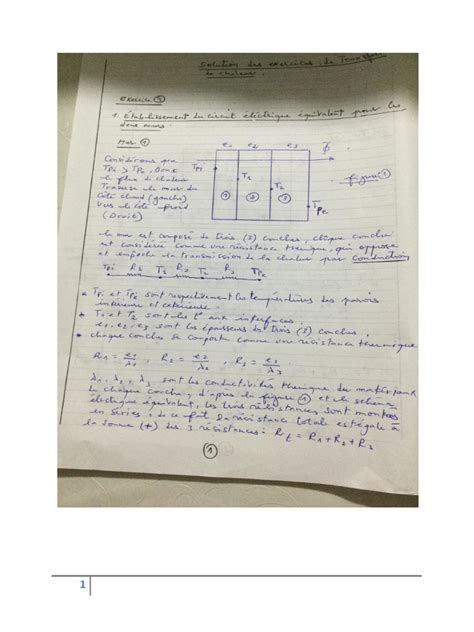 Solution des exercices de Transfert
de chaleur.
Exercice ①
1. Etablissement du circuit électrique équivalent pour les
deux murs:
Mur ①
Considérons que
Tpi > Tpe, Donc
le flux de chaleur
Traverse le mur du
Côté chaud (gauche)
vers le côté froid
(Droit)
e1 e2 e3 Φ
Tpi T1 T2 Tpe
① ② ③
figure ①
le mur est composé de trois (3) couches, chaque couche
est considérée comme une résistance thermique, qui oppose
et empêche la transmission de la chaleur par Conduction
Tpi R1 T1 R2 T2 R3 Tpe
* Tpi et Tpe sont respectivement les températures des parois
intérieure et extérieure.
* T1 et T2 sont les t° aux interfaces.
e1, e2, e3 sont les épaisseurs des trois (3) couches.
* chaque couche se comporte comme une résistance thermique
R1 = e1/λ1, R2 = e2/λ2, R3 = e3/λ3
λ1, λ2, λ3 sont les conductivités thermique du matériaux
de chaque couche, d'après la figure ① et le schéma
électrique équivalent, les trois résistances sont montées
en séries, de ce fait la résistance totale est égale à
la somme (+) des 3 résistances: Rt = R1 + R2 + R3
①
1